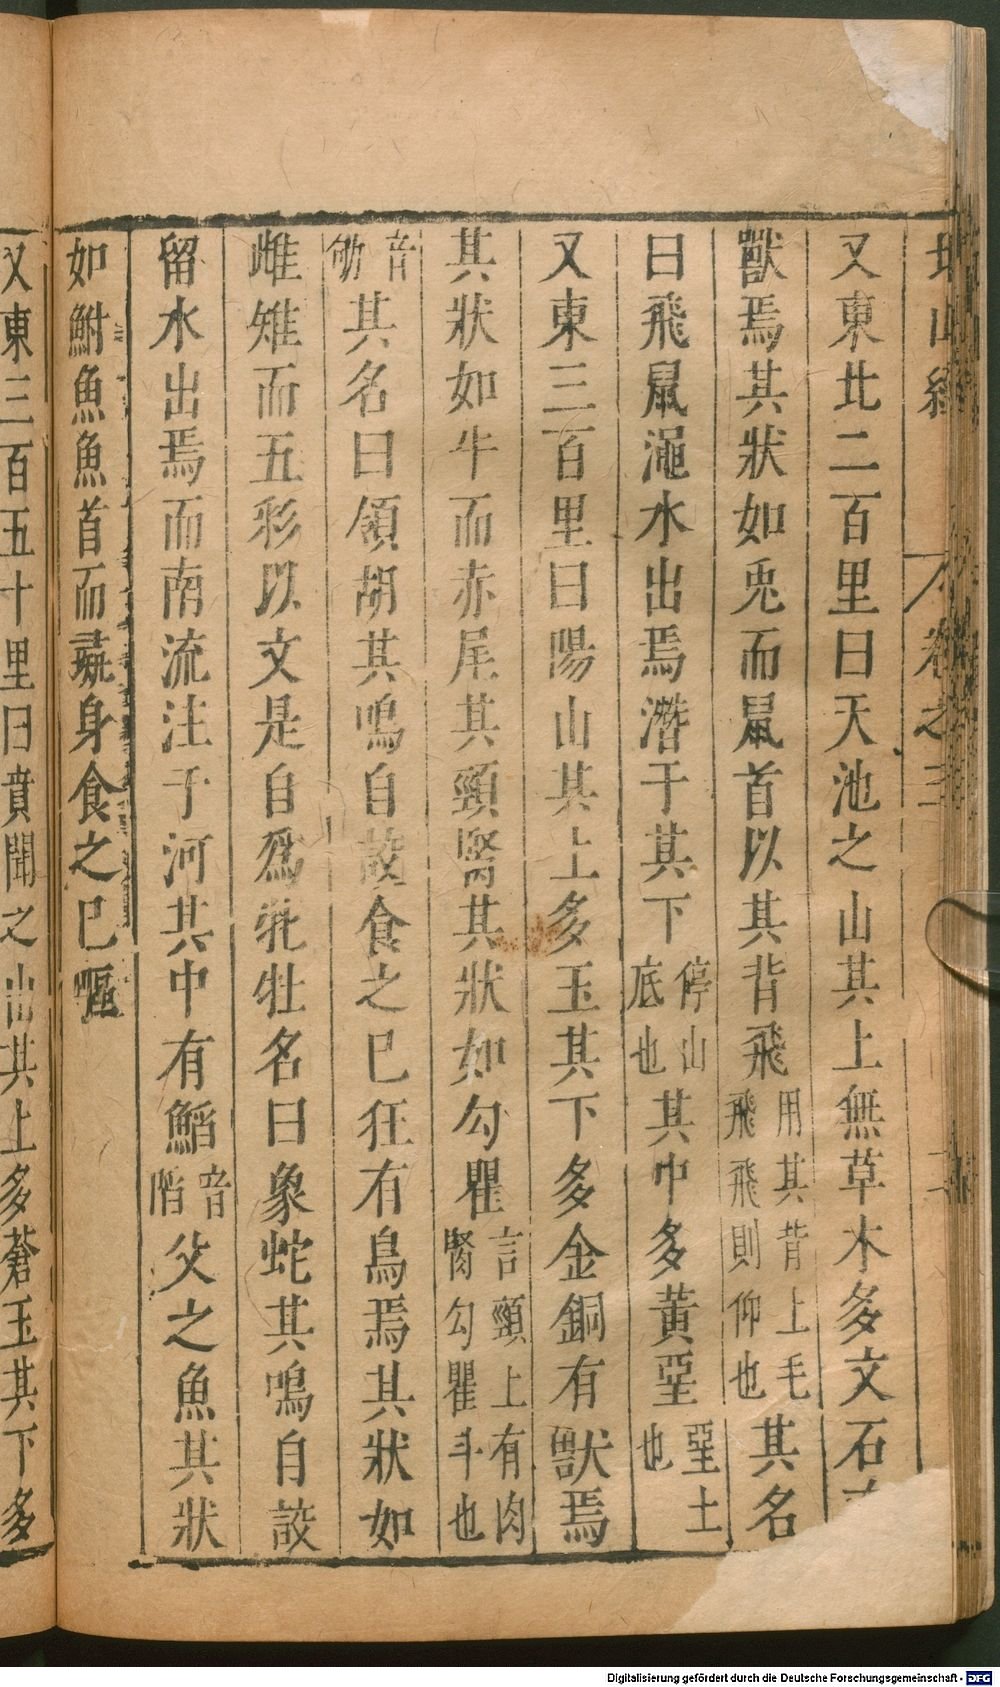 又東北二百里曰天池之山其上無草木多文石
獸焉其狀如兎而鼠首以其背飛用其背上毛飛飛則仰也其名
曰飛鼠澠水出焉潛于其下停山底也其中多黃堊堊土也
又東三百里曰陽山其上多玉其下多金銅有獸焉
其狀如牛而赤尾其頸䏿其狀如勾瞿言頸上有肉䏿勾瞿斗也
音劬其名曰領胡其鳴自詨食之已狂有鳥焉其狀如
雌雉而五彩以文是自爲牝牡名曰象蛇其鳴自詨
留水出焉而南流注于河其中有䱤音陷父之魚其狀
如鮒魚魚首而彘身食之已嘔
又東三百五十里曰賁聞之山其上多蒼玉其下多
卷之三
二
Digitalisierung gefördert durch die Deutsche Forschungsgemeinschaft - DFG